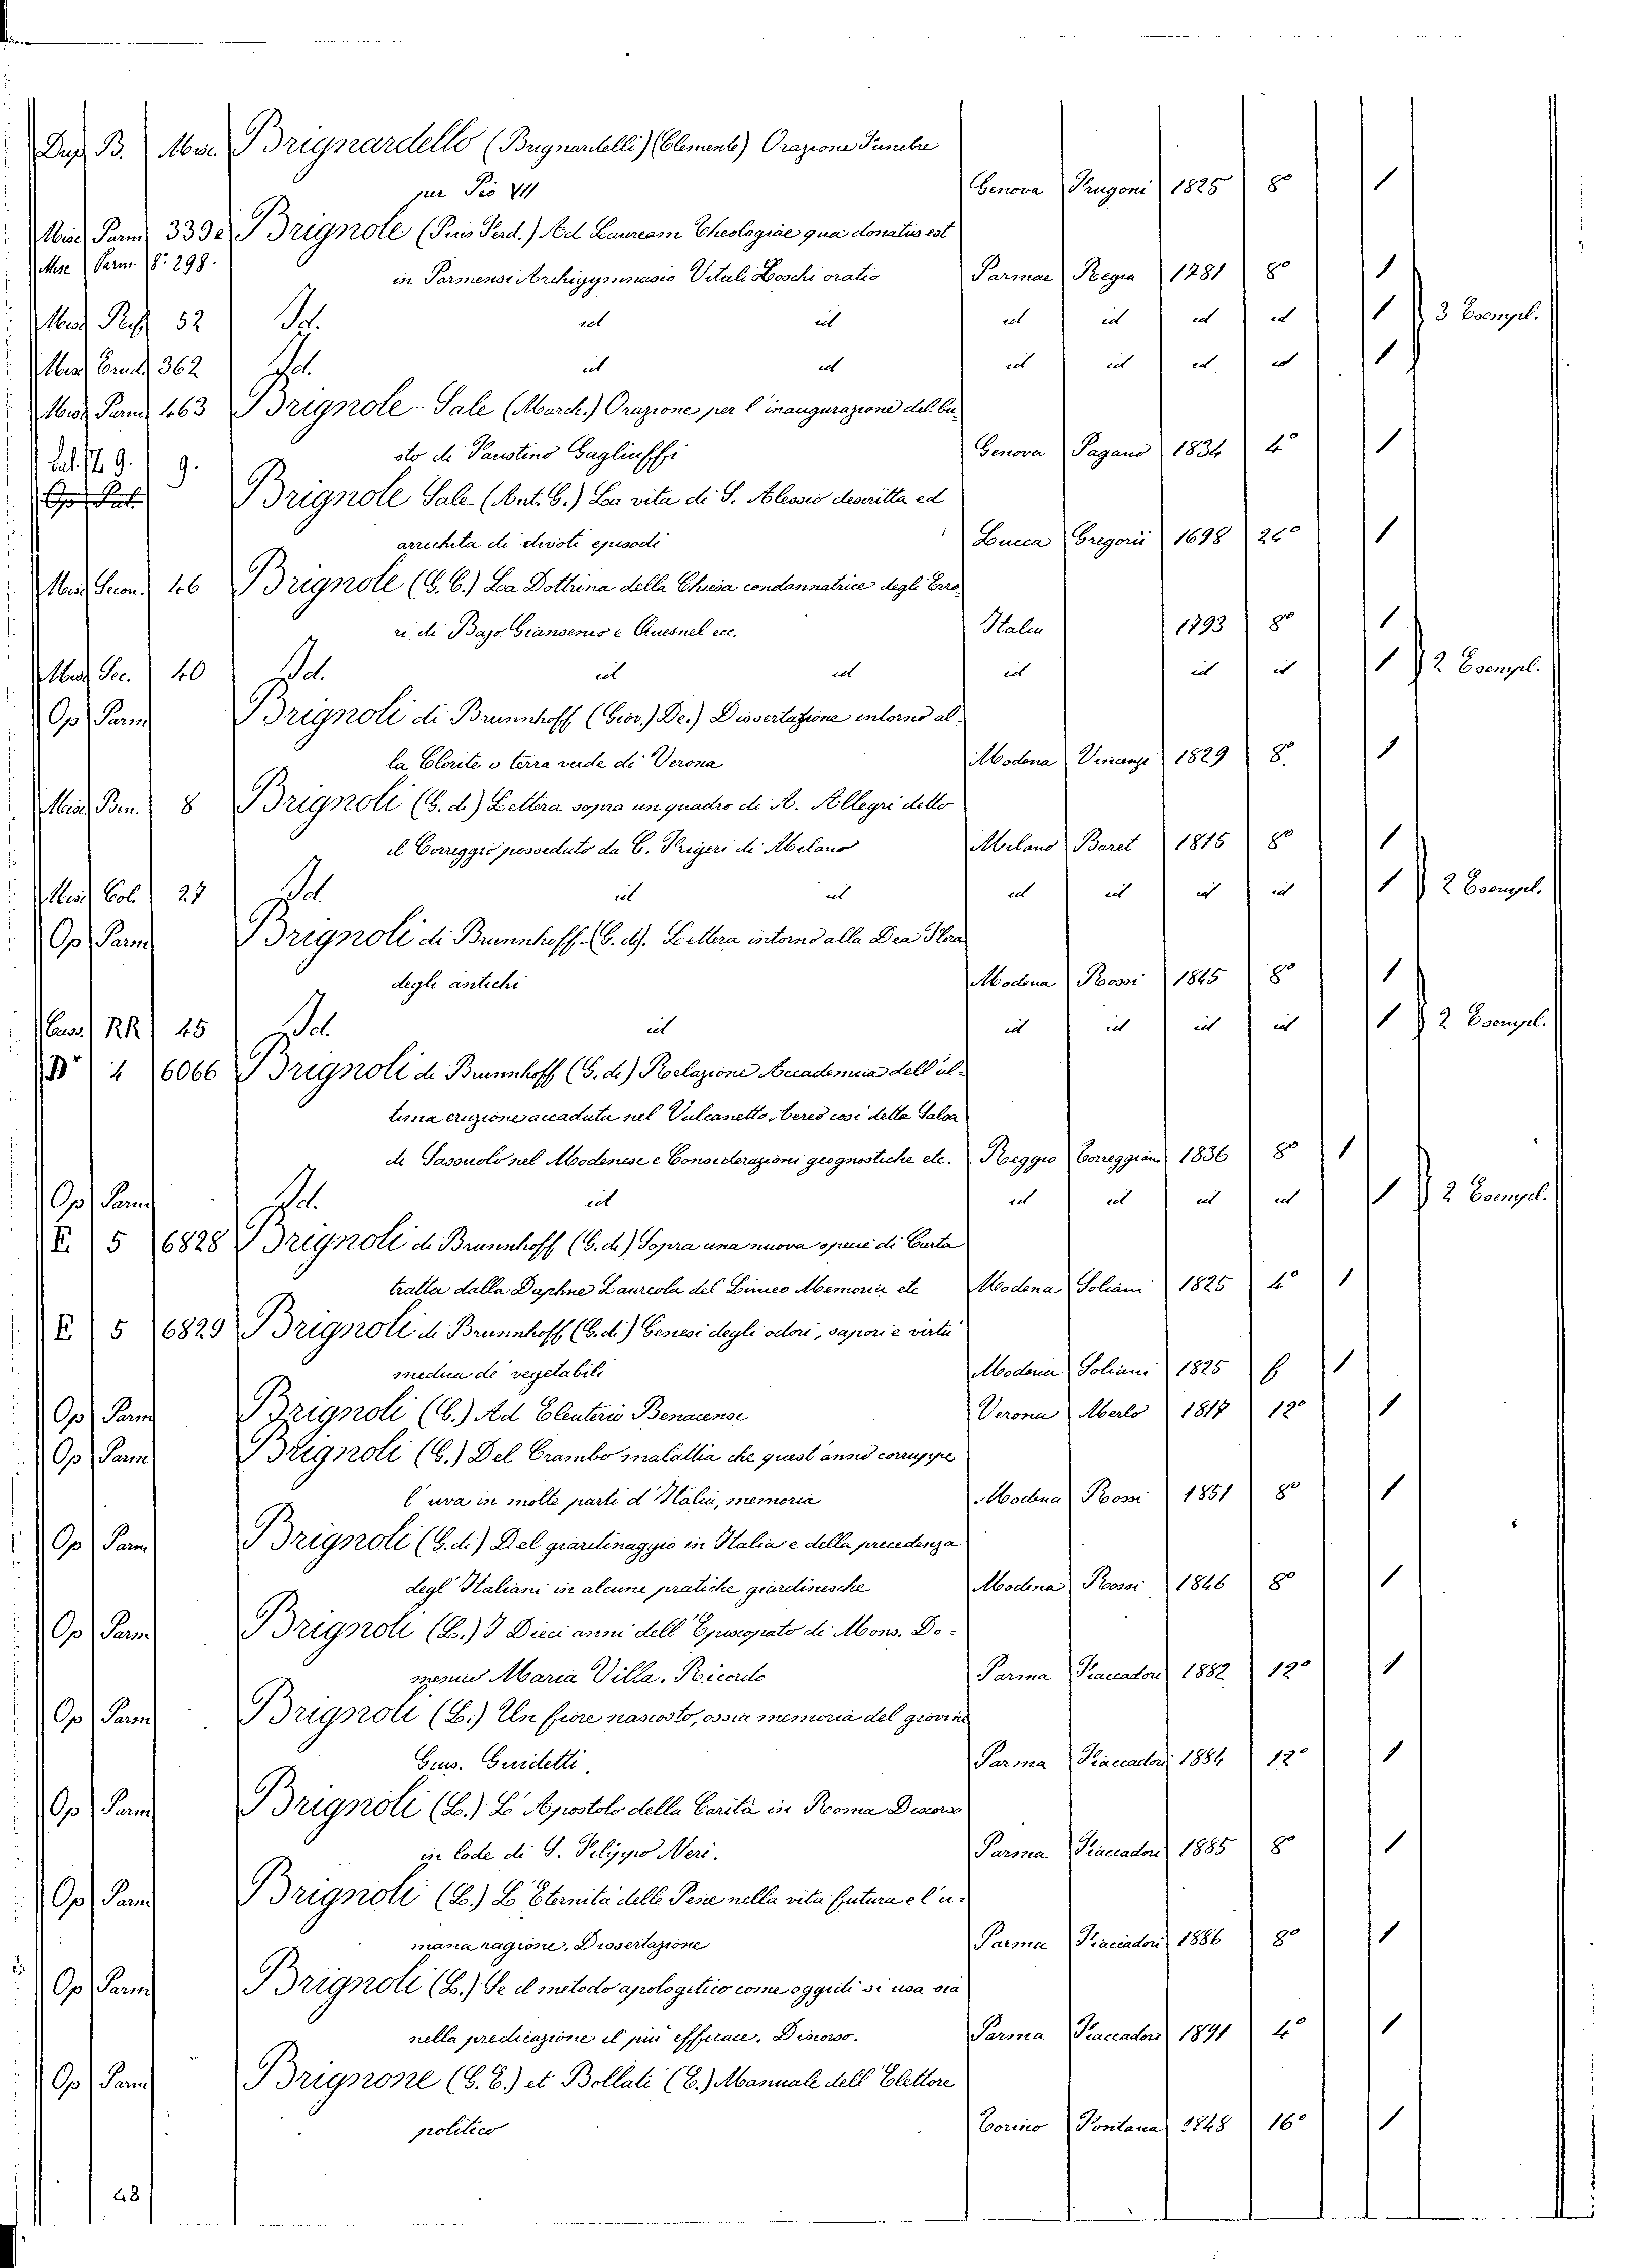 Dup B. Misc. Brignardello (Brignardelli) (Clemente) Orazione Funebre
per Pio VII Genova Frugoni 1825 8° 1
Misc Parm 339 Brignole (Pius Ferd.) Ad Lauream Theologiae qua donatus est
Misc Parm. 8° 298.
in Parmensi Archigymnasio Vitali Loschi oratio Parmae Regia 1781 8° 1
Misc 52 Id. id id id id id id 1 3 Esempl.
Misc Erud 362 Id. id id id id id id 1
Misc Parm 463 Brignole-Sale (March.) Orazione per l'inaugurazione del bu
sto di Faustino Gagliuffi Genova Pagano 1834 4° 1
9. 9.
Brignole Sale (Ant. G.) La vita di S. Alessio descritta ed
arrichita di divoti episodi Lucca Gregorii 1698 1
Misc 46 Brignole (G. C.) La Dottrina della Chiesa condannatrice degli Erro
ri di Bajo Giansenio e Quesnel ecc. Italia 1793 8° 1
Misc Sec. 40 Id. id id id id id 1 2 Esempl.
Op Parm Brignoli di Brunnhoff (Giov.) De.) Dissertazione intorno al
la Clorite o terra verde di Verona Modena Vincenzi 1829 8° 1
Misc Parm. 8 Brignoli (G. de) Lettera sopra un quadro di A. Allegri detto
il Correggio posseduto da C. Frigeri di Milano Milano Baret 1815 8° 1
Misc Col. 27 Id. id id id id id id 1 2 Esempl.
Op Parm Brignoli di Brunnhoff. (G. de). Lettera intorno alla Dea Flora
degli antichi Modena Rossi 1845 8° 1
RR 45 Id. id id id id id 1 2 Esempl.
4 6066 Brignoli de Brunnhoff (G. de) Relazione Accademica dell'ul-
tima eruzione accaduta nel Vulcanetto Aereo così detto Salsa
di Sassuolo nel Modenese e Considerazioni geognostiche etc. Reggio 1836 8° 1
Op Parm Id. id id id id id 1 2 Esempl.
E 5 6828 Brignoli de Brunnhoff (G. de) Sopra una nuova specie di Carta
tratta dalla Daphne Laureola del Linneo Memoria etc Modena Soliani 1825 4° 1
E 5 6829 Brignoli de Brunnhoff (G. di) Genesi degli odori, sapori e virtù
medica de' vegetabili Modena Soliani 1825 1
Op Parm Brignoli (G.) Ad Eleuterio Benacense Verona Merlo 1817 12° 1
Op Parm Brignoli (G.) Del Crambo malattia che quest'anno corruppe
l'uva in molte parti d'Italia, memoria Modena Rossi 1851 8° 1
Op Parm Brignoli (G. di) Del giardinaggio in Italia e della precedenza
degl'Italiani in alcune pratiche giardinesche Modena Rossi 1846 8° 1
Op Parm Brignoli (L.) I Dieci anni dell'Episcopato di Mons. Do-
menico Maria Villa. Ricordo Parma Fiaccadori 1882 12° 1
Op Parm Brignoli (L.) Un fiore nascosto, ossia memoria del giovine
Gius. Guidetti, Parma Fiaccadori 1884 12° 1
Op Parm Brignoli (L.) L'Apostolo della Carità in Roma Discorso
in lode di S. Filippo Neri. Parma Fiaccadori 1885 8° 1
Op Parm Brignoli (L.) L'Eternità delle Pene nella vita futura e l'u-
mana ragione. Dissertazione Parma Fiaccadori 1886 8° 1
Op Parm Brignoli (L.) Se il metodo apologetico come oggidì si usa sia
nella predicazione il più efficace. Discorso. Parma Fiaccadori 1891 4° 1
Op Parm Brignone (G. C.) et Bollati (E.) Manuale dell'Elettore
politico Torino Fontana 1848 16° 1
48